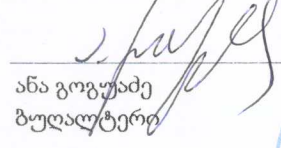 ანა გოგუაძე
ბუღალტერი